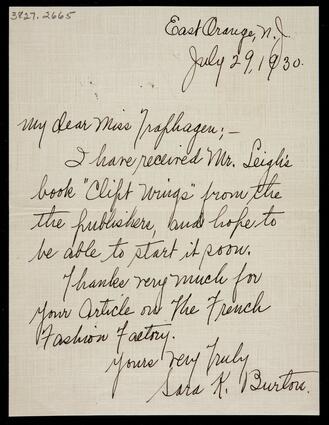 3827.2665
East Orange, N.J.
July 29, 1930.
My dear Miss Traphagen; -
I have received Mr. Leigh's
book "Clipt Wings" from the
the publishers, and hope to
be able to start it soon.
Thanks very much for
your Article on The French
Fashion Factory.
Yours very Truly
Sara K. Burton.